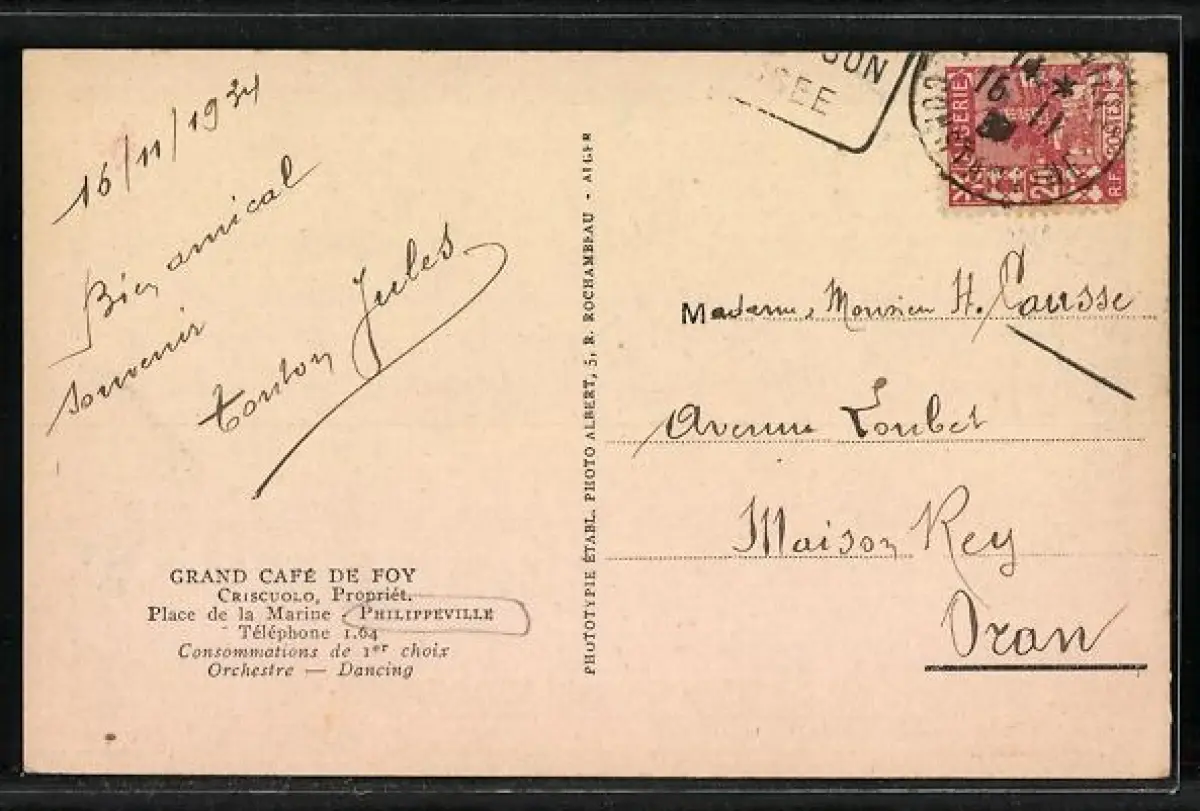 16/11/1934
Bien amical
souvenir
tonton Jules
GRAND CAFÉ DE FOY
CRISCUOLO, Propriét.
Place de la Marine - PHILIPPEVILLE
Téléphone 1.64
Consommations de 1er choix
Orchestre — Dancing
PHOTOTYPIE ÉTABL. PHOTO ALBERT, 5, R. ROCHAMBEAU - ALGER
16 11
20
R.F. POSTES
Madame, Monsieur H. Causse
Avenue Loubet
Maison Rey
Oran